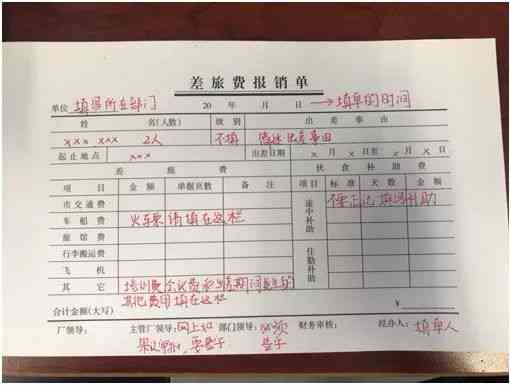 差旅费报销单
单位 填写所在部门 20 年 月 日 → 填单的时间
姓 名(人数) 级别 出差事由
xxx xxx 2人 不填 出差事由
起止地点 xxx 出差日期 x 月 x 日至 x 月 x 日
差旅费 伙食补助费
项目 金额 单据页数 备注 项目 标准 天数 金额
市交通费 途中补助
车船费 火车票请填在这栏
旅馆费
行李搬运费 住勤补助
飞机
其它 培训费会议费
其他费用填在这栏
合计金额(大写) ¥
厂领导: 主管厂领导: 网上如 部门领导: 必须 财务审核: 经办人: 填单人
要签字 签字